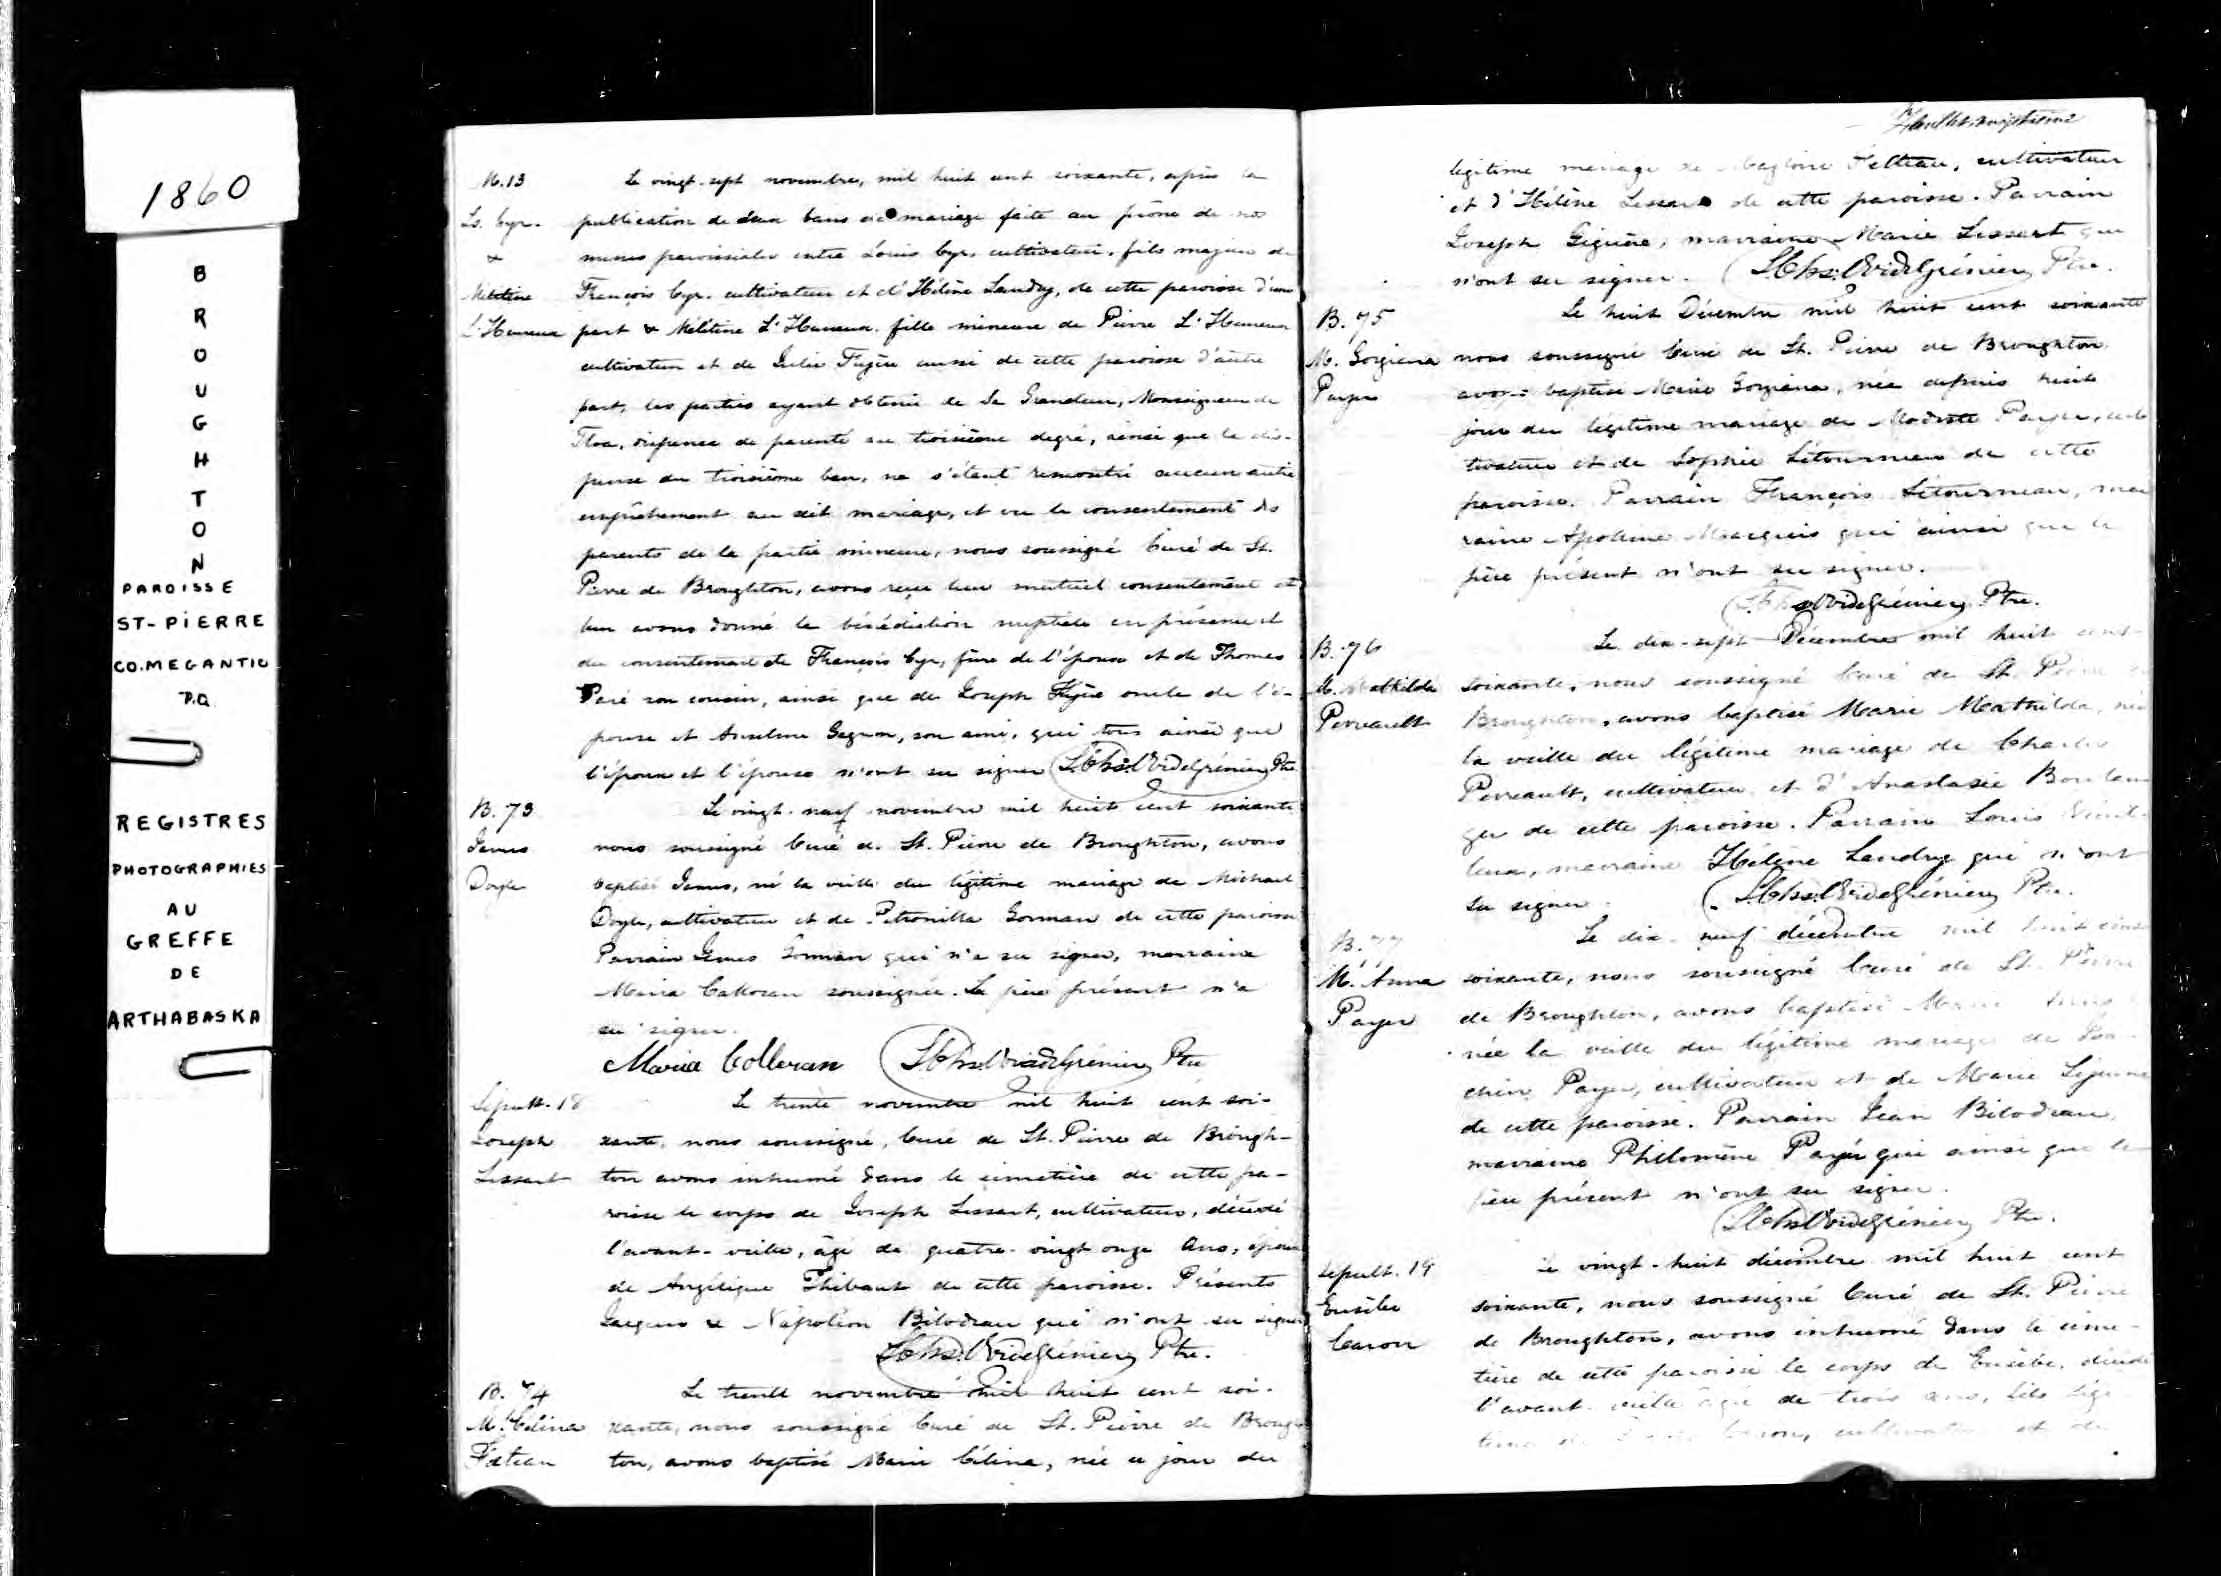 1860
BROUGHTON
PAROISSE
ST-PIERRE
CO. MEGANTIC
P.Q.
REGISTRES
PHOTOGRAPHIES
AU
GREFFE
DE
ARTHABASKA
M. 13
Ls. Cyr.
&
Mélitine
L'Heureux
Le vingt-sept novembre, mil huit cent soixante, après la
publication de deux bans de mariage faite au prône de nos
messes paroissiales entre Louis Cyr, cultivateur, fils majeur de
François Cyr, cultivateur et d'Hélène Landry, de cette paroisse d'une
part & Mélitine L'Heureux fille mineure de Pierre L'Heureux
cultivateur et de Julie Fugère aussi de cette paroisse d'autre
part, les parties ayant obtenu de Sa Grandeur, Monseigneur de
Tloa, dispense de parenté au troisième degré, ainsi que la dis-
pense du troisième ban, ne s'étant rencontré aucun autre
empêchement au dit mariage, et vu le consentement des
parents de la partie mineure, nous soussigné Curé de St.
Pierre de Broughton, avons reçu leur mutuel consentement et
leur avons donné la bénédiction nuptiale en présence et
du consentement de François Cyr, père de l'époux et de Thomas
Paré son cousin, ainsi que de Joseph Fugère oncle de l'é-
pouse et Anselme Gagnon, son ami, qui tous ainsi que
l'époux et l'épouse n'ont su signer L. Chs. Ovide Grénier, Ptre
B. 73
James
Doyle
Le vingt-neuf novembre mil huit cent soixante
nous soussigné Curé de St. Pierre de Broughton, avons
baptisé James, né la veille du légitime mariage de Michael
Doyle, cultivateur et de Petronilla Gorman de cette paroisse
Parrain James Gorman qui n'a su signer, marraine
Maria Colloran soussignée. Le père présent n'a
su signer.
Maria Colleran L. Chs. Ovide Grénier, Ptre
Sépult. 18
Joseph
Lessart
Le trente novembre mil huit cent soi-
xante, nous soussigné, Curé de St. Pierre de Brough-
ton avons inhumé dans le cimetière de cette pa-
roisse le corps de Joseph Lessart, cultivateur, décédé
l'avant-veille, âgé de quatre-vingt onze ans, époux
de Angélique Thibaut de cette paroisse. Présents
Jacques & Napoléon Bilodeau qui n'ont su signer
L. Chs. Ovide Grénier, Ptre.
B. 74
M. Célina
Le trente novembre mil huit cent soi-
xante, nous soussigné Curé de St. Pierre de Brough
ton, avons baptisé Marie Célina, née ce jour du
légitime mariage de Magloire cultivateur
et d'Hélène Lessard de cette paroisse. Parrain
Joseph Giguère, marraine Marie Lessart qui
n'ont su signer. L. Chs. Ovide Grénier, Ptre.
B. 75
M. Gorgiana
Payer
Le huit Décembre mil huit cent soixante
nous soussigné Curé de St. Pierre de Broughton
avons baptisé Marie Gorgiana, née depuis huit
jours du légitime mariage de Modeste Payer, cul
tivateur et de Sophie Létourneau de cette
paroisse. Parrain François Létourneau, mar
raine Apoline Marquis qui ainsi que le
père présent n'ont su signer.
L. Chs. Ovide Grénier, Ptre.
B. 76
M. Mathilda
Perreault
Le dix-sept Décembre mil huit cent
soixante, nous soussigné Curé de St. Pierre de
Broughton, avons baptisé Marie Mathilda, née
la veille du légitime mariage de Charles
Perreault, cultivateur et d'Anastasie Boulan
ger de cette paroisse. Parrain Louis
marraine Hélène Landry qui n'ont
su signer. L. Chs. Ovide Grénier, Ptre.
B. 77
M. Anna
Payer
Le dix-neuf décembre mil huit cent
soixante, nous soussigné Curé de St. Pierre
de Broughton, avons baptisé Marie Anna
née la veille du légitime mariage de Joa-
chin Payer, cultivateur et de Marie
de cette paroisse. Parrain Jean Bilodeau,
marraine Philomène Payer qui ainsi que le
père présent n'ont su signer.
L. Chs. Ovide Grénier, Ptre.
Sépult. 19
Eusèbe
Caron
Le vingt-huit décembre mil huit cent
soixante, nous soussigné Curé de St. Pierre
de Broughton, avons inhumé dans le cime-
tière de cette paroisse le corps de Eusèbe, décédé
l'avant-veille âgé de trois ans, fils légi
time de Caron, cultivateur et de